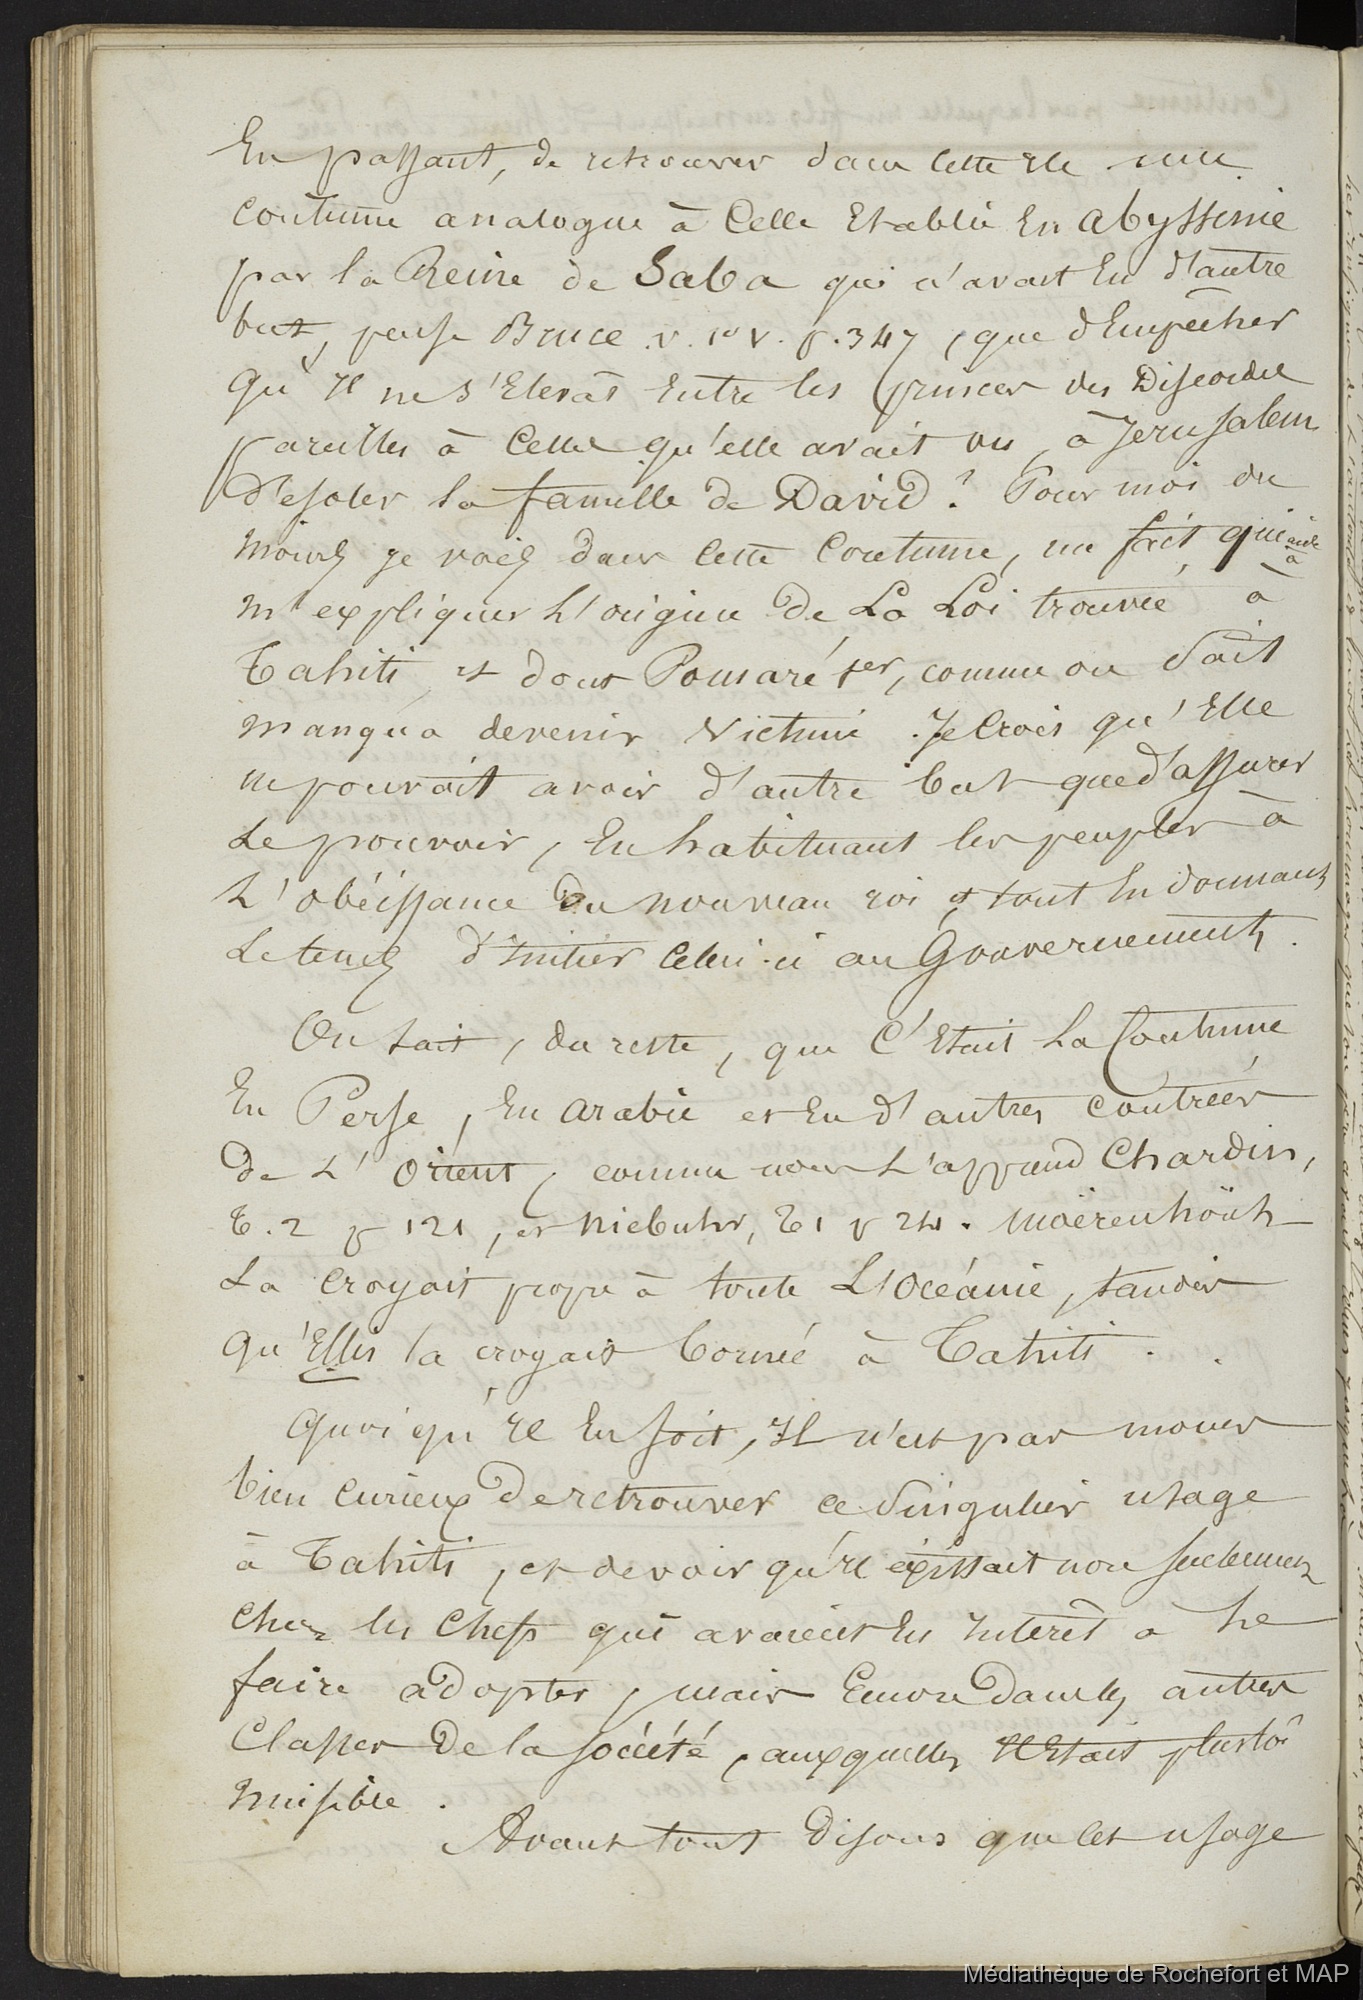 En passant, de retrouver dans cette Ile une
coutume analogue à Celle Etablie En abyssinie
par la Reine de Saba qui n'avait Eu d'autre
but, pense Bruce v. 1er v. p. 347, que d'Empêcher
qu'Il ne s'Elevât Entre les princes des Discordes
pareilles à Celles qu'elle avait vu, à Jerusalem
désoler la famille de David? Pour moi du
moins je vois dans cette Coutume, un fait qui aide
à
m'expliquer L'origine de La Loi trouvée à
Tahiti, et dont Pomaré 1er, comme on Sait
manqua devenir Victime. Je Crois qu'Elle
ne pouvait avoir d'autre but que d'assurer
Le pouvoir, En habituant les peuples à
L'obéissance du nouveau roi et tout En donnant
Le tems d'initier Celui-ci au Gouvernement.
On Sait, du reste, que C'Etait La Coutume
En Perse, En Arabie et En d'autres Contrées
de L'Orient, comme nous L'apprend Chardin,
T. 2 p 121, et Niebuhr, T1 p 24. Moërenhoüt
La Croyait propre à toute L'Océanie, tandis
qu'Ellis la croyait bornée à Tahiti.
Quoiqu'Il En soit, Il n'est pas moins
bien curieux de retrouver ce Singulier usage
à Tahiti, et de voir qu'Il existait non seulement
chez les Chefs qui avaient Eu Intérêt à Le
faire adopter, mais Encore dans les autres
Classes de la société, auxquelles Il Etait plustôt
nuisible.
Avant tout disons que cet usage
Médiathèque de Rochefort et MAP